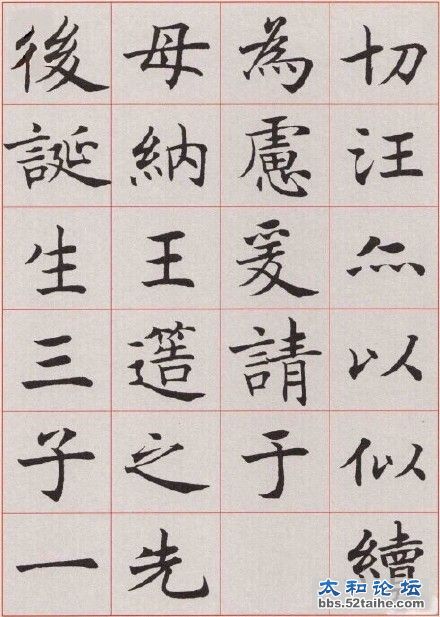 切汪亦以似續
為慮爰請于
母納王簉之先
後誕生三子一
太和论坛
bbs.52taihe.com